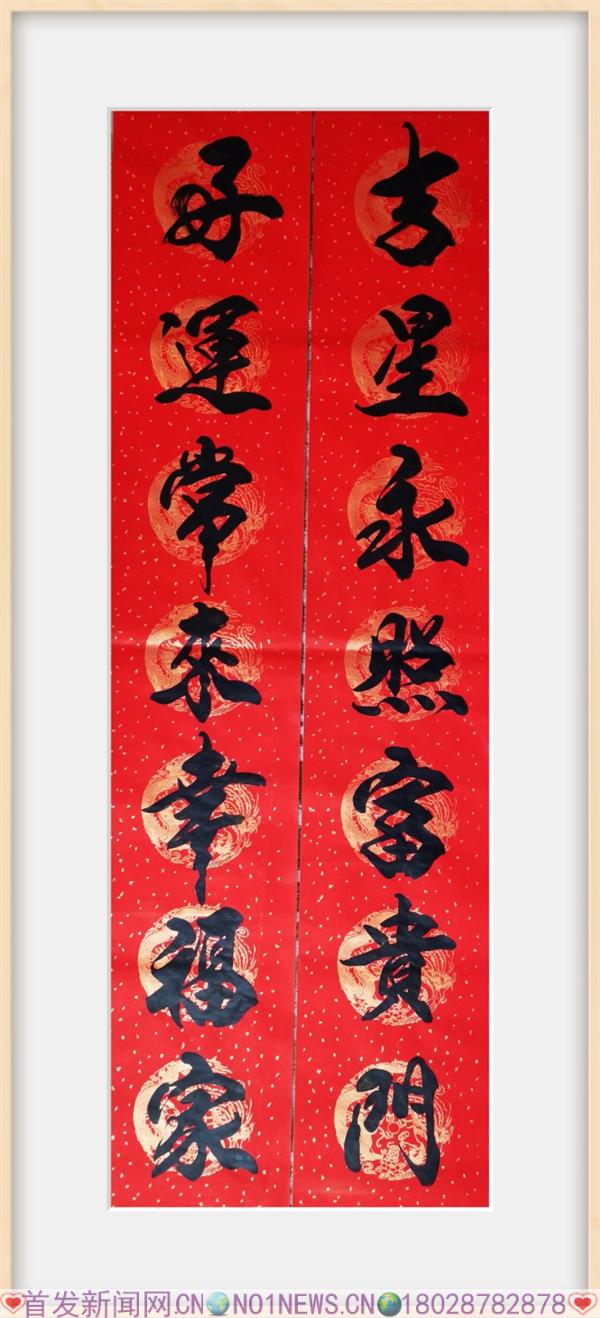 吉星永照富貴門
好運常來幸福家
首发新闻网.CN NO1NEWS.CN 18028782878